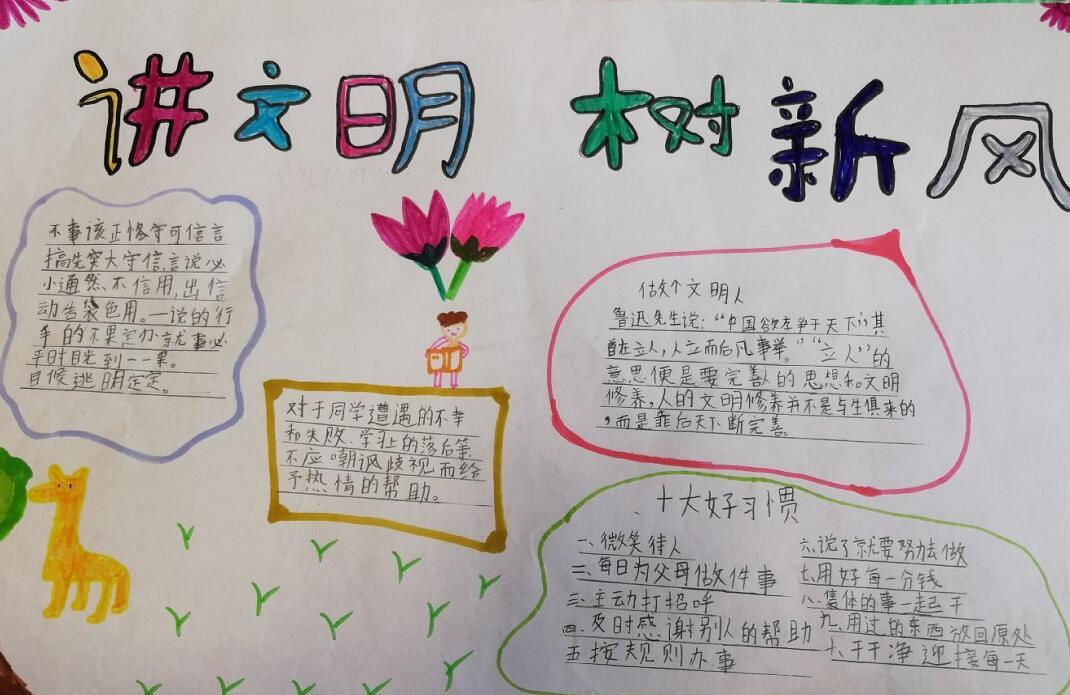 讲文明 树新风
不事该正恪守可信言
搞先突大守信,言说必
小通然、不信用,出信
动告袋色用。一说的行
手的不果定办就事必
平时目光到一一果。
目候逃明定定。
对于同学遭遇的不幸
和失败、学业上的落后等,
不应嘲讽歧视而给
予热情的帮助。
做个文明人
鲁迅先生说:“中国欲存争于天下,其
首在立人,人立而后凡事举。”“立人”的
意思便是要完善人的思想和文明
修养,人的文明修养并不是与生俱来的
,而是靠后天不断完善。
十大好习惯
一、微笑待人
二、每日为父母做件事
三、主动打招呼
四、及时感谢别人的帮助
五、按规则办事
六、说了就要努力去做
七、用好每一分钱
八、集体的事一起干
九、用过的东西放回原处
十、干干净迎接每一天